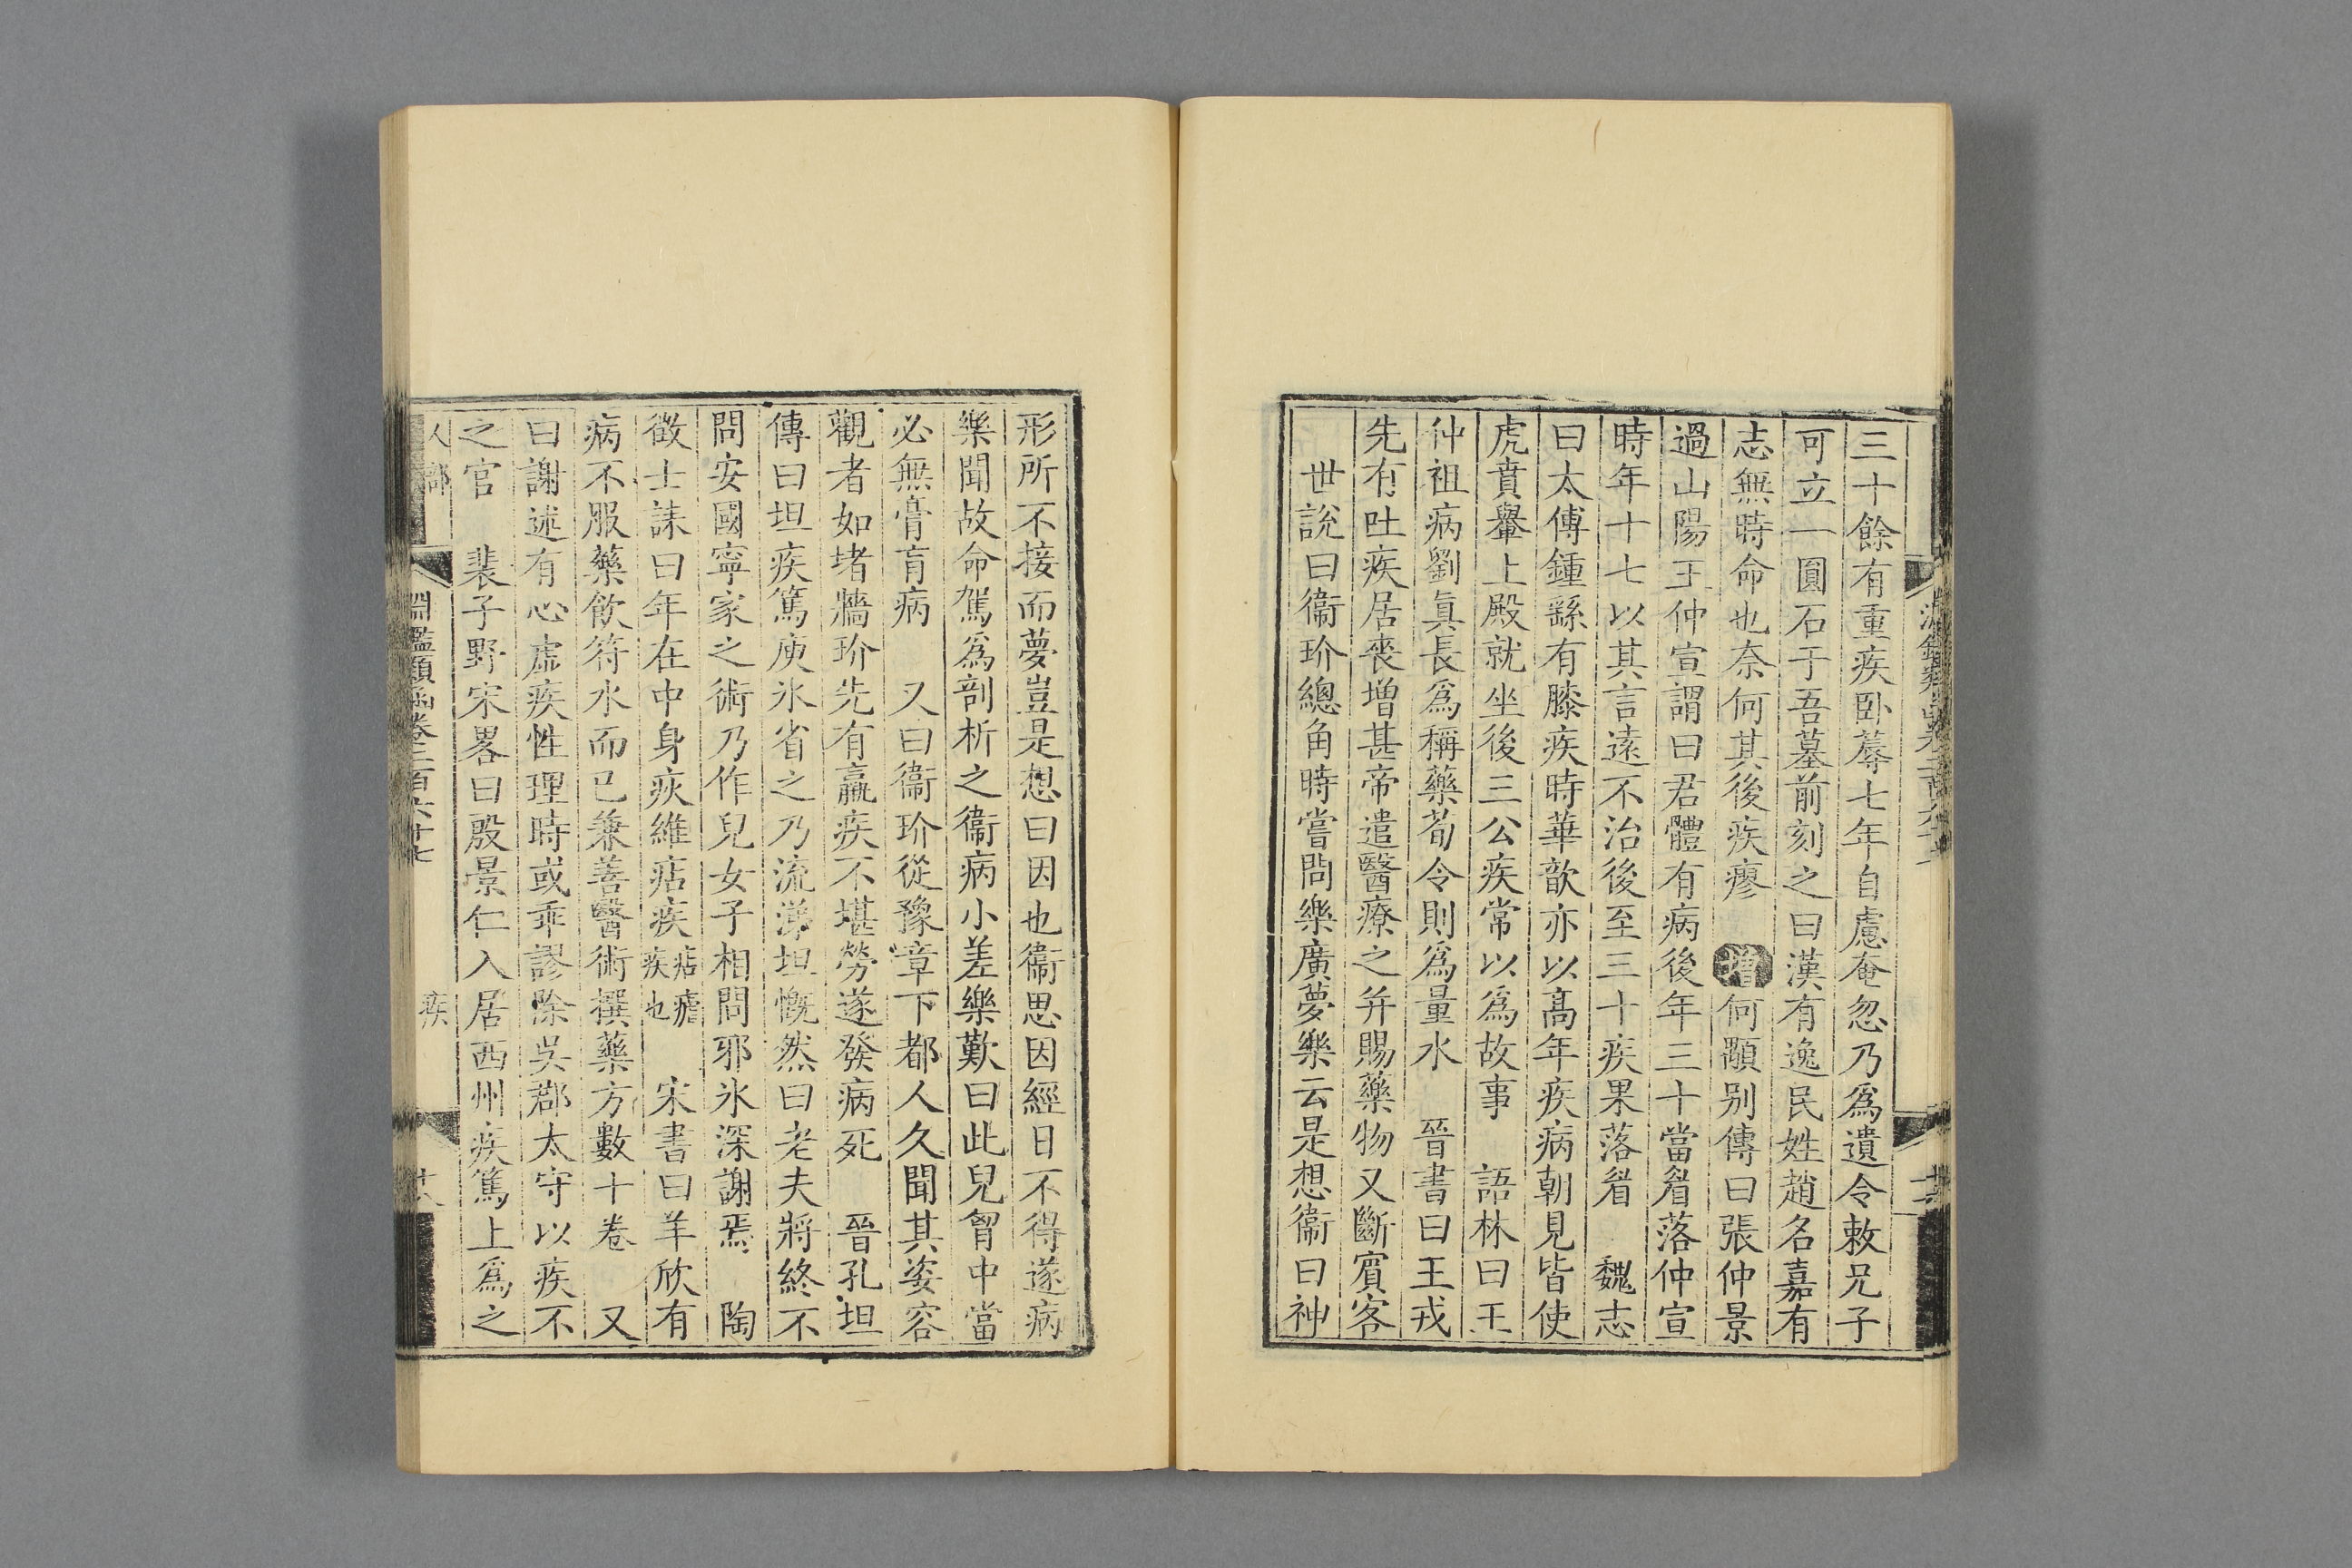 三十餘有重疾卧蓐七年自慮奄忽乃爲遺令敕兄子
可立一圓石于吾墓前刻之曰漢有逸民姓趙名嘉有
志無時命也奈何其後疾瘳 增何顒别傳曰張仲景
過山陽王仲宣謂曰君體有病後年三十當眉落仲宣
時年十七以其言遠不治後至三十疾果落眉 魏志
曰太傅鍾繇有膝疾時華歆亦以髙年疾病朝見皆使
虎賁轝上殿就坐後三公疾常以爲故事 語林曰王
仲祖病劉眞長爲稱藥荀令則爲量水 晉書曰王戎
先有吐疾居喪增甚帝遣醫療之并賜藥物又斷賓客
世説曰衞玠總角時嘗問樂廣夢樂云是想衞曰神
形所不接而夢豈是想曰因也衞思因經日不得遂病
樂聞故命駕爲剖析之衞病小差樂歎曰此兒胷中當
必無膏肓病 又曰衞玠從豫章下都人久聞其姿容
觀者如堵牆玠先有羸疾不堪勞遂發病死 晉孔坦
傳曰坦疾篤庾氷省之乃流涕坦慨然曰老夫將終不
問安國寧家之術乃作兒女子相問邪氷深謝焉 陶
徵士誄曰年在中身疢維痁疾痁瘧疾也 宋書曰羊欣有
病不服藥飲符水而已兼善醫術撰藥方數十卷 又
曰謝述有心虛疾性理時或乖謬除吳郡太守以疾不
之官 裴子野宋畧曰殷景仁入居西州疾篤上爲之
人部
淵鑑類函卷二百六十七
疾
廿八